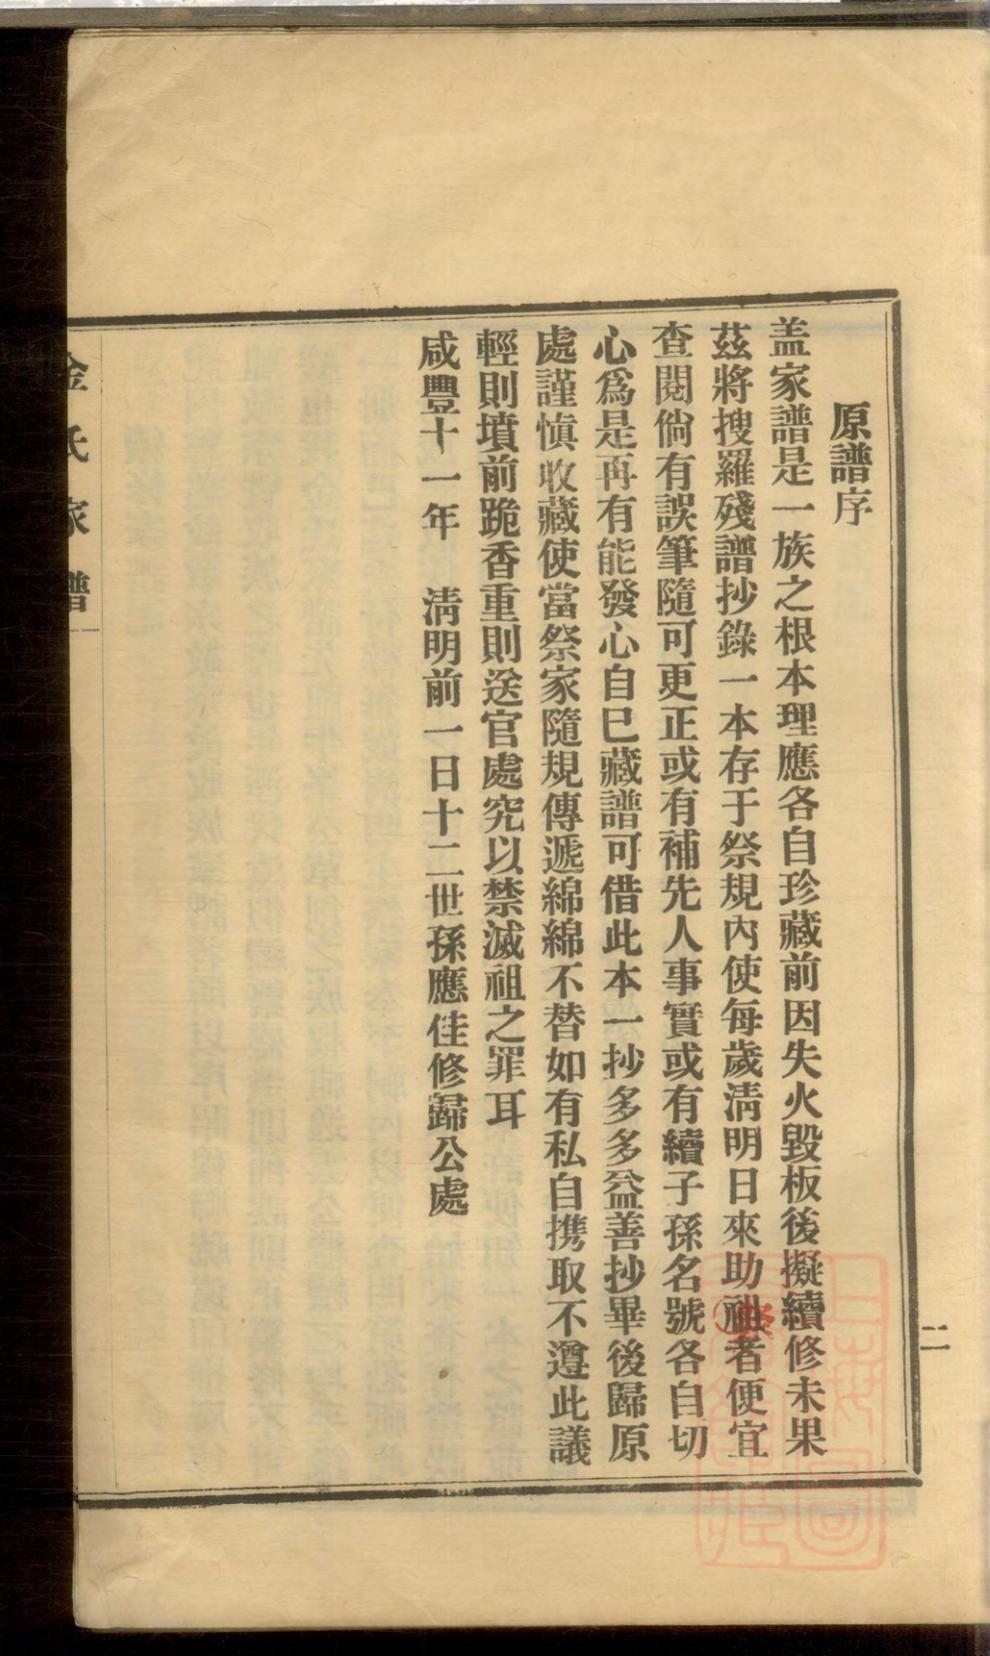 原譜序
盖家譜是一族之根本理應各自珍藏前因失火毀板後擬續修未果
茲將搜羅殘譜抄錄一本存于祭規內使每歲清明日來助祖者便宜
查閱倘有誤筆隨可更正或有補先人事實或有續子孫名號各自切
心爲是再有能發心自巳藏譜可借此本一抄多多益善抄畢後歸原
處謹慎收藏使當祭家隨規傳遞綿綿不替如有私自携取不遵此議
輕則墳前跪香重則送官處究以禁滅祖之罪耳
咸豐十一年 清明前一日十二世孫應佳修歸公處
金氏家譜
二